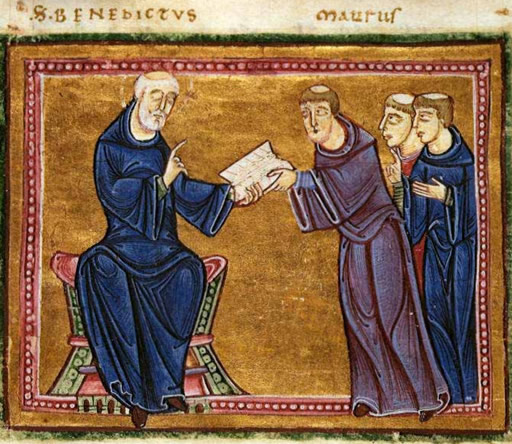 S. BENEDICTVS
Maurus